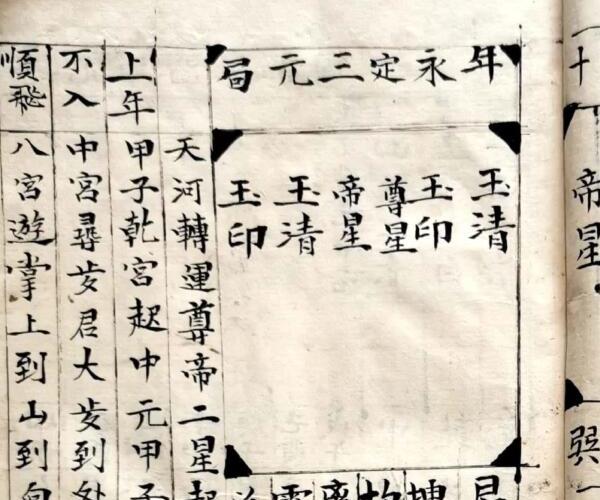 年永定三元局
玉清
玉印
尊星
帝星
玉清
玉印
天河轉運尊帝二星起
上年甲子乾宮起中元甲子
不入中宮尋歩君大歩到
順飛八宮遊掌上到山到向
十
帝星
巽